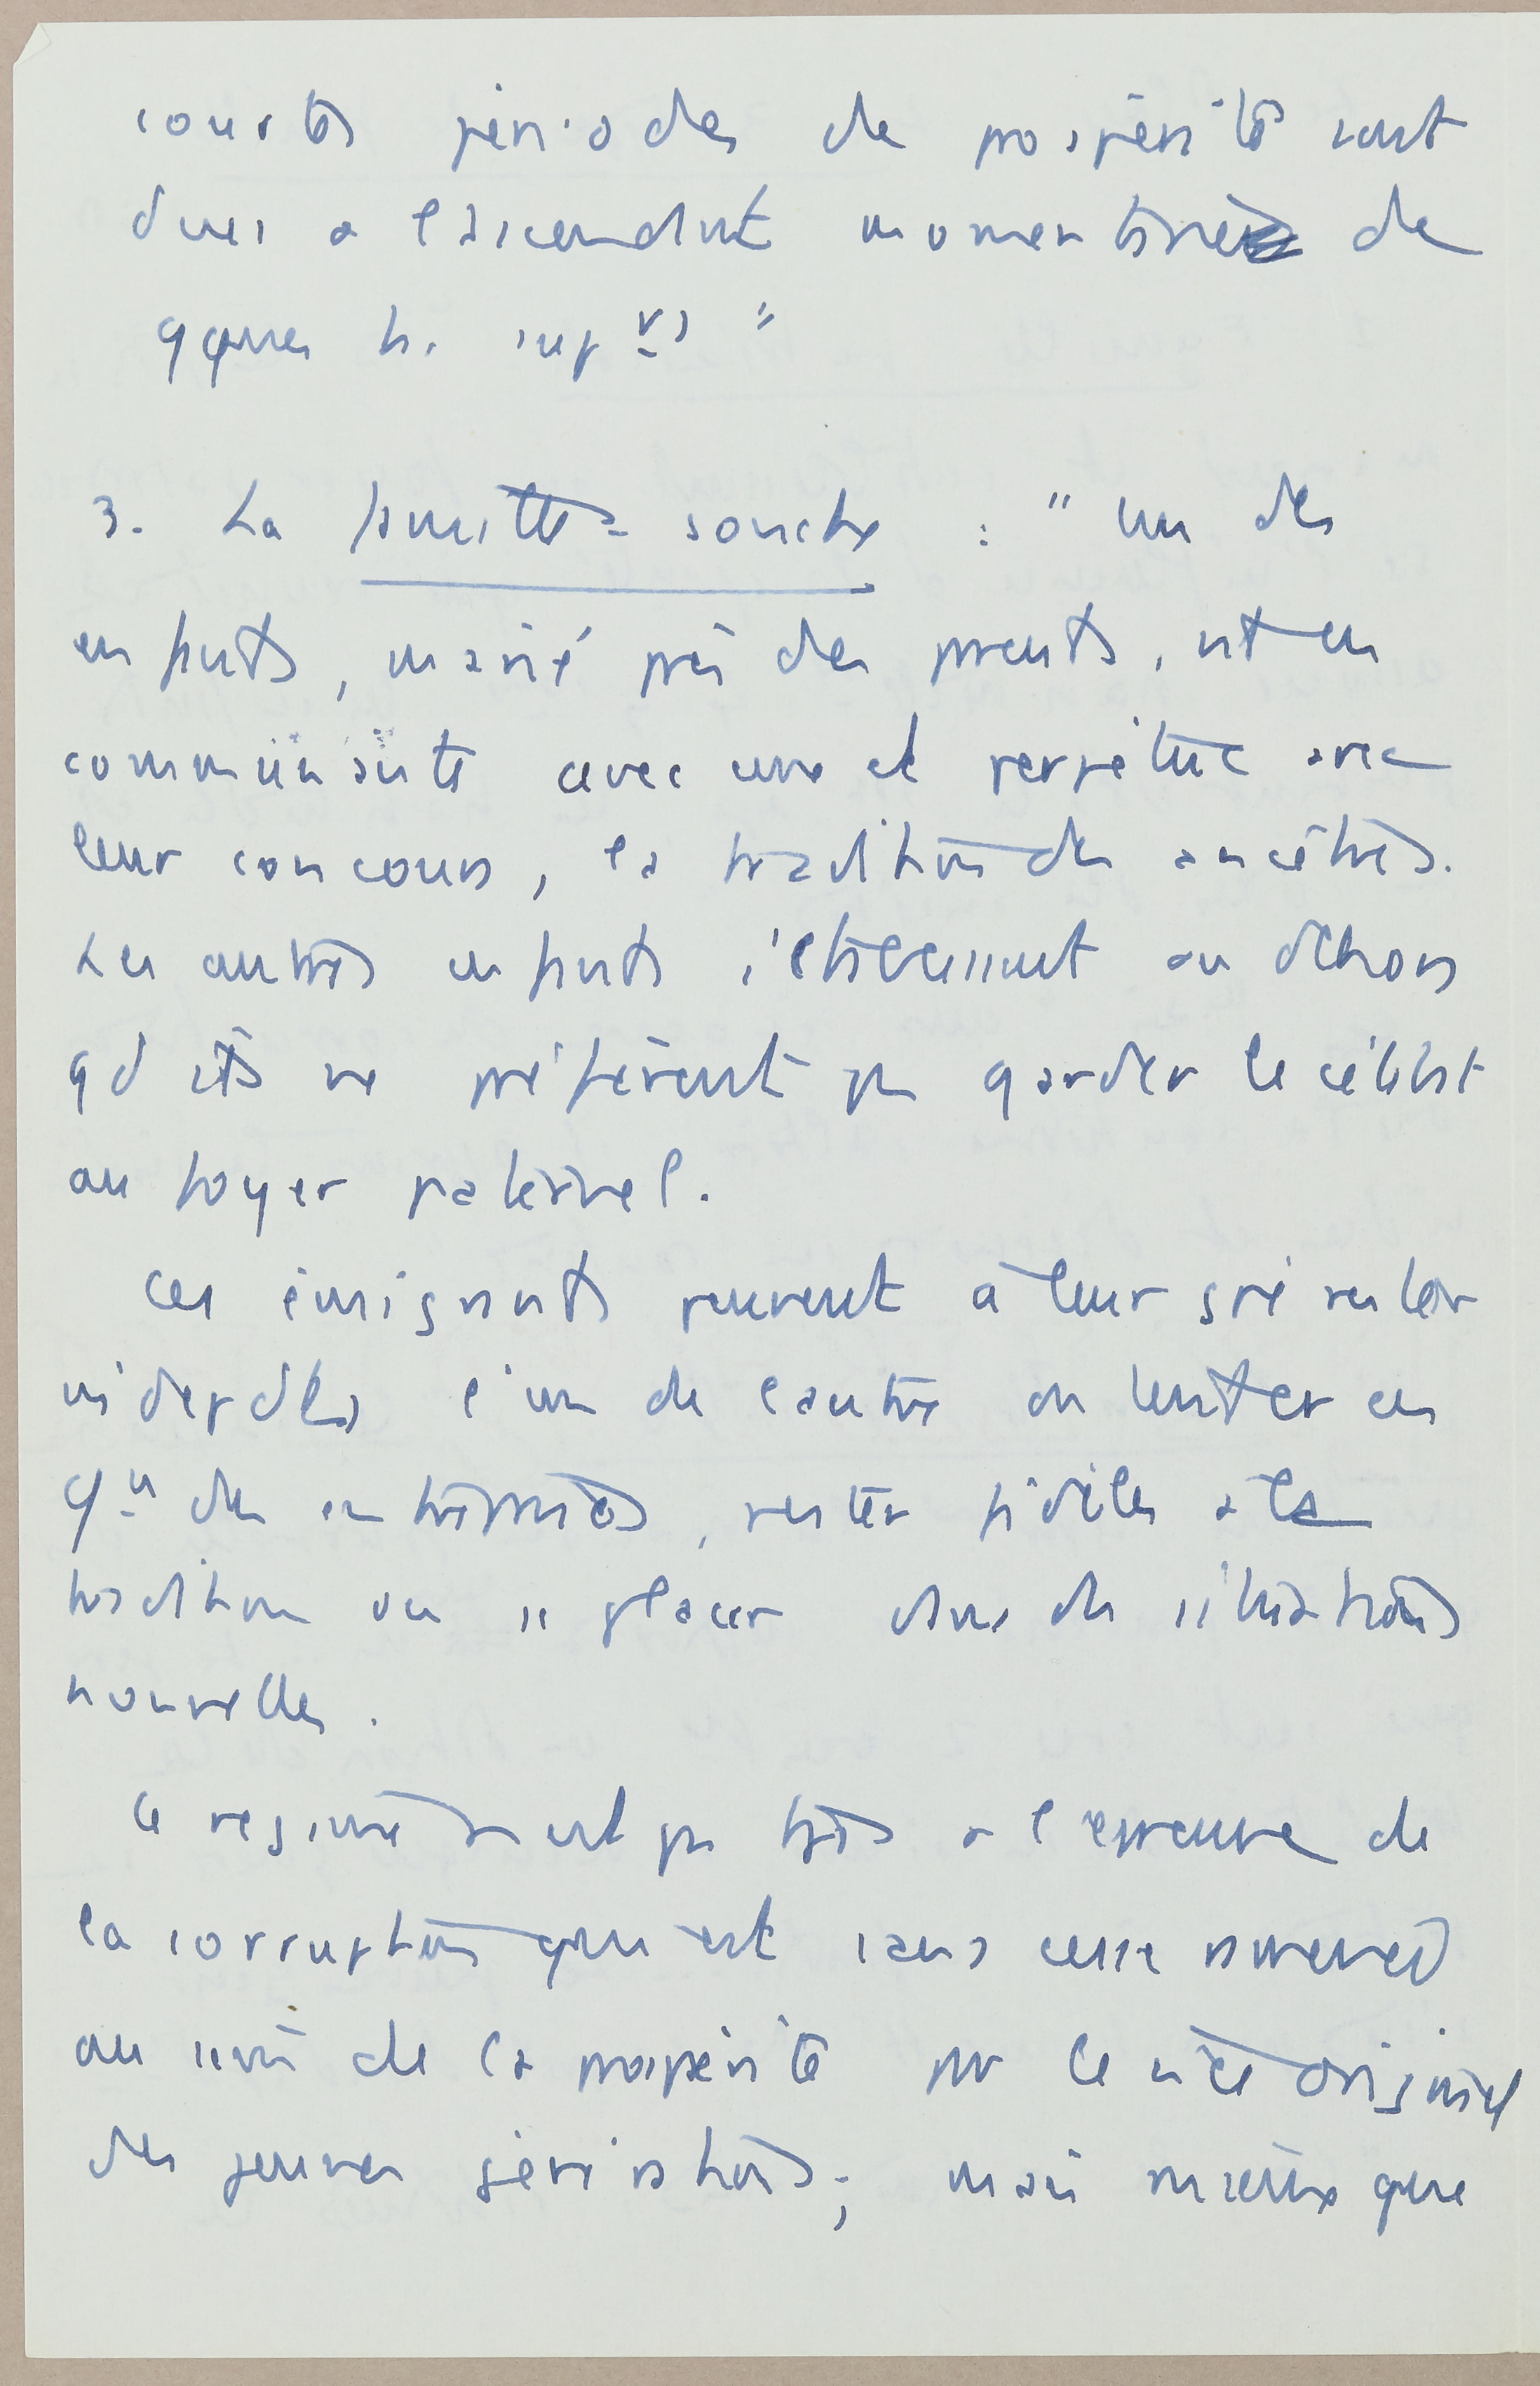 courtes périodes de prospérité sont
dues a l'ascendant momentané de
qques h. suprs "
3. La famille-souche : " un des
enfants, marié près des parents, vit en
communauté avec eux et perpétue avec
leur concours, la tradition des ancêtres.
Les autres enfants s'établissent au dehors
qd ils ne préfèrent pas garder le célibat
au foyer paternel.
Ces émigrants peuvent à leur gré rester
indépdts l'un de l'autre ou tenter en
des entreprises, rester fidèles a la
tradition ou se placer dans des situations
nouvelles.
Ce régime n'est pas à l'épreuve de
la corruption qui est sans cesse ramenée
au sein de la prospérité par le vice originel
des jeunes générations; mais mieux que